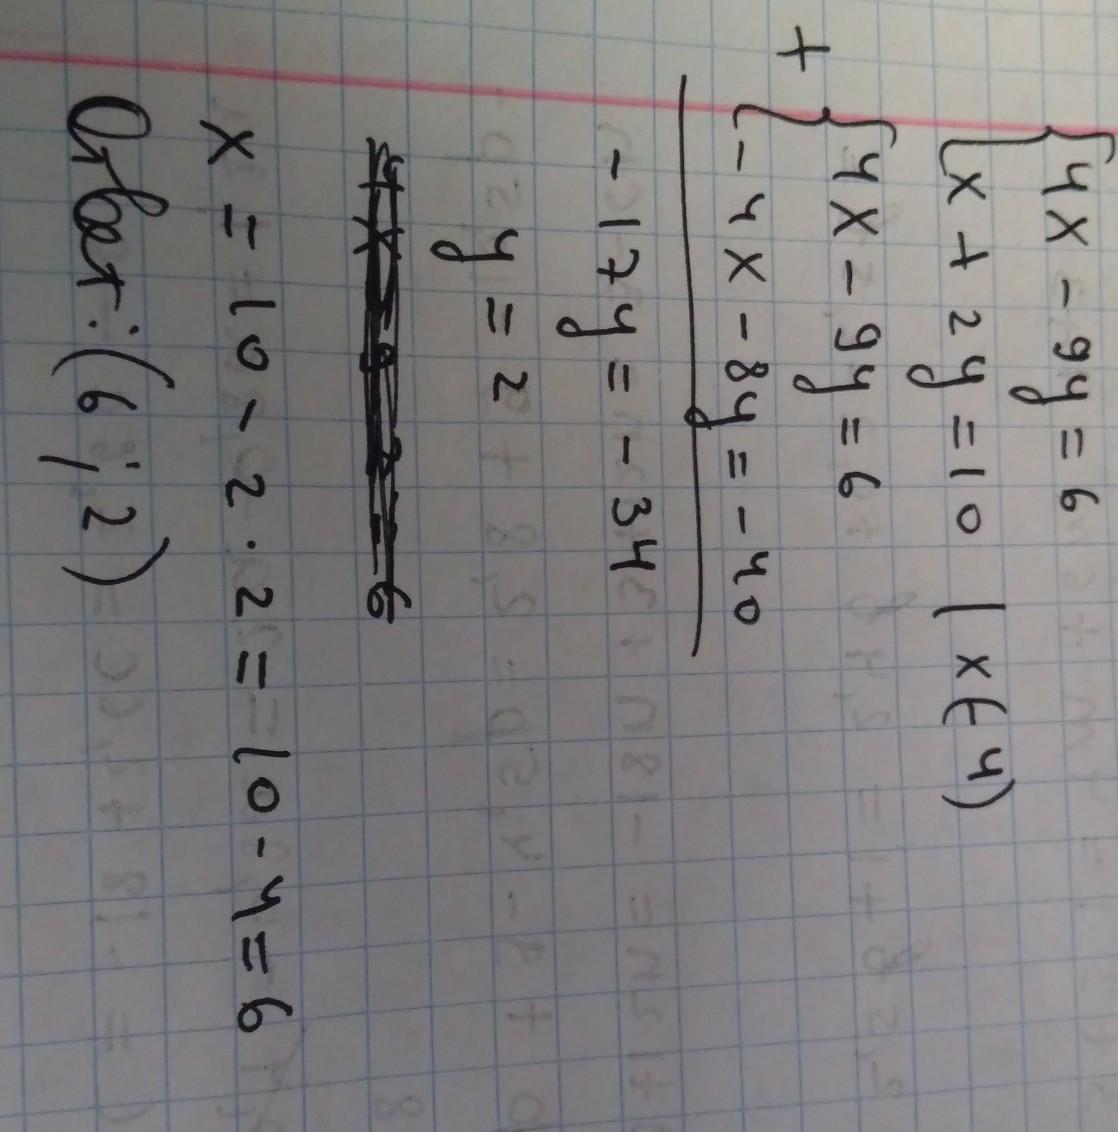 4x - 9y = 6
x + 2y = 10 | x(-4)
+
4x - 9y = 6
- 4x - 8y = - 40
- 17y = - 34
y = 2
x = 10 - 2 · 2 = 10 - 4 = 6
Ответ: (6 ; 2)